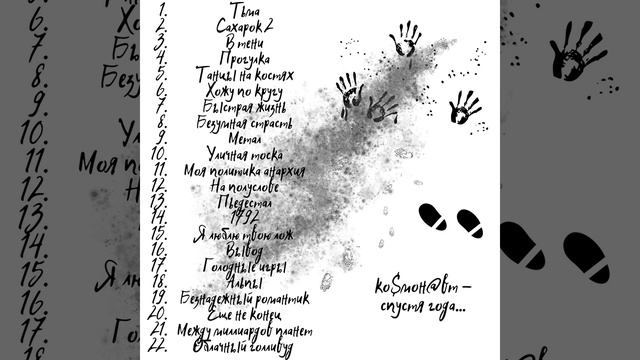 1. Тьма
2. Сахарок 2
3. В тени
4. Прогулка
5. Танцы на костях
6. Хожу по кругу
7. Быстрая жизнь
8. Безумная страсть
9. Метал
10. Уличная тоска
11. Моя политика анархия
12. На полуслове
13. Пьедестал
14. 1992
15. Я люблю твою лож
16. Вывод
17. Голодные игры
18. Альпы
19. Безнадежный романтик
20. Еще не конец
21. Между миллиардов планет
22. Облачный голивуд
ko$мон@вт –
спустя года...